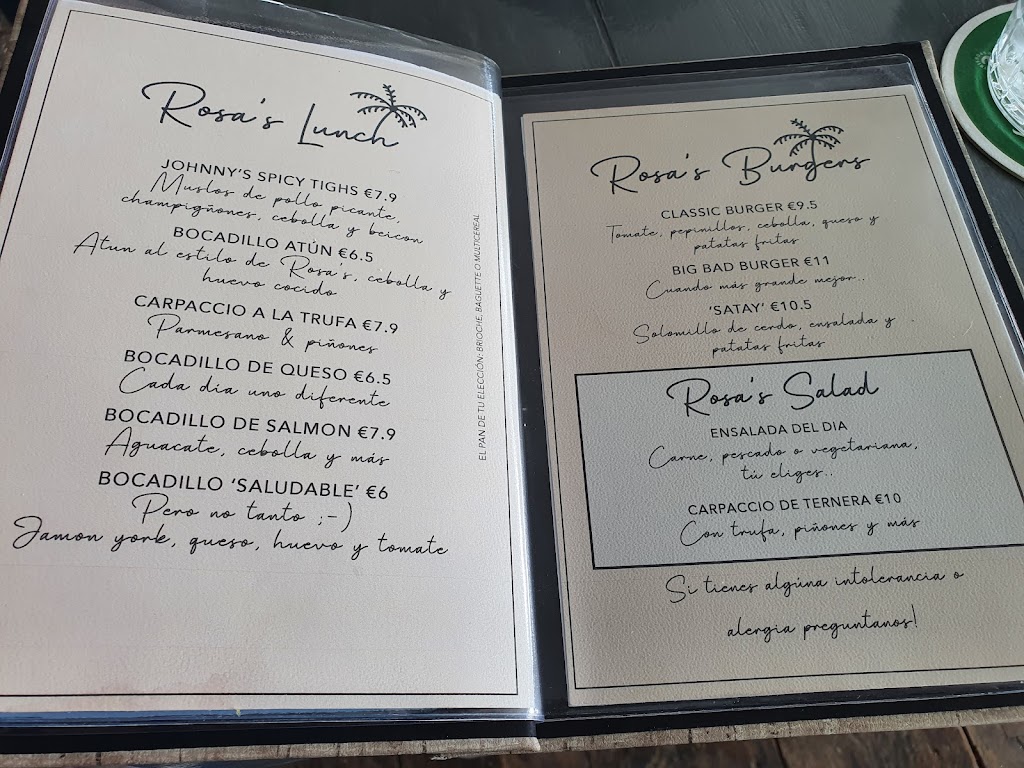 Rosa's Lunch
JOHNNY'S SPICY TIGHS €7.9
Muslos de pollo picante,
champigñones, cebolla y beicon
BOCADILLO ATÚN €6.5
Atun al estilo de Rosa's, cebolla y
huevo cocido
CARPACCIO A LA TRUFA €7.9
Parmesano & piñones
BOCADILLO DE QUESO €6.5
Cada dia uno diferente
BOCADILLO DE SALMON €7.9
Aguacate, cebolla y más
BOCADILLO 'SALUDABLE' €6
Pero no tanto ;-)
Jamon york, queso, huevo y tomate
EL PAN DE TU ELECCIÓN: BRIOCHE, BAGUETTE O MULTICEREAL
Rosa's Burgers
CLASSIC BURGER €9.5
Tomate, pepinillos, cebolla, queso y
patatas fritas
BIG BAD BURGER €11
Cuando más grande mejor..
'SATAY' €10.5
Solomillo de cerdo, ensalada y
patatas fritas
Rosa's Salad
ENSALADA DEL DIA
Carne, pescado o vegetariana,
tú eliges..
CARPACCIO DE TERNERA €10
Con trufa, piñones y más
Si tienes algúna intolerancia o
alergia preguntanos!